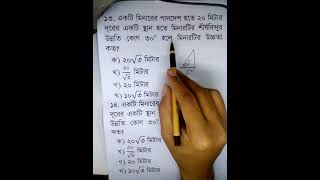 ১৩. একটি মিনারের পাদদেশ হতে ২০ মিটার
দূরের একটি স্থান হতে মিনারটির শীর্ষবিন্দুর
উন্নতি কোণ ৩০° হলে মিনারটির উচ্চতা
কত?
ক) ২০√৩ মিটার
খ) ২০/√৩ মিটার
গ) ২০ মিটার
ঘ) ১০√৩ মিটার
১৪. একটি মিনারের
দূরের একটি স্থান
উন্নতি কোণ ৩০°
কত?
ক) ২০√৩ মিটার
খ) ২০/√৩ মিটার
গ) ২০ মিটার
ঘ) ১০√৩ মিটার